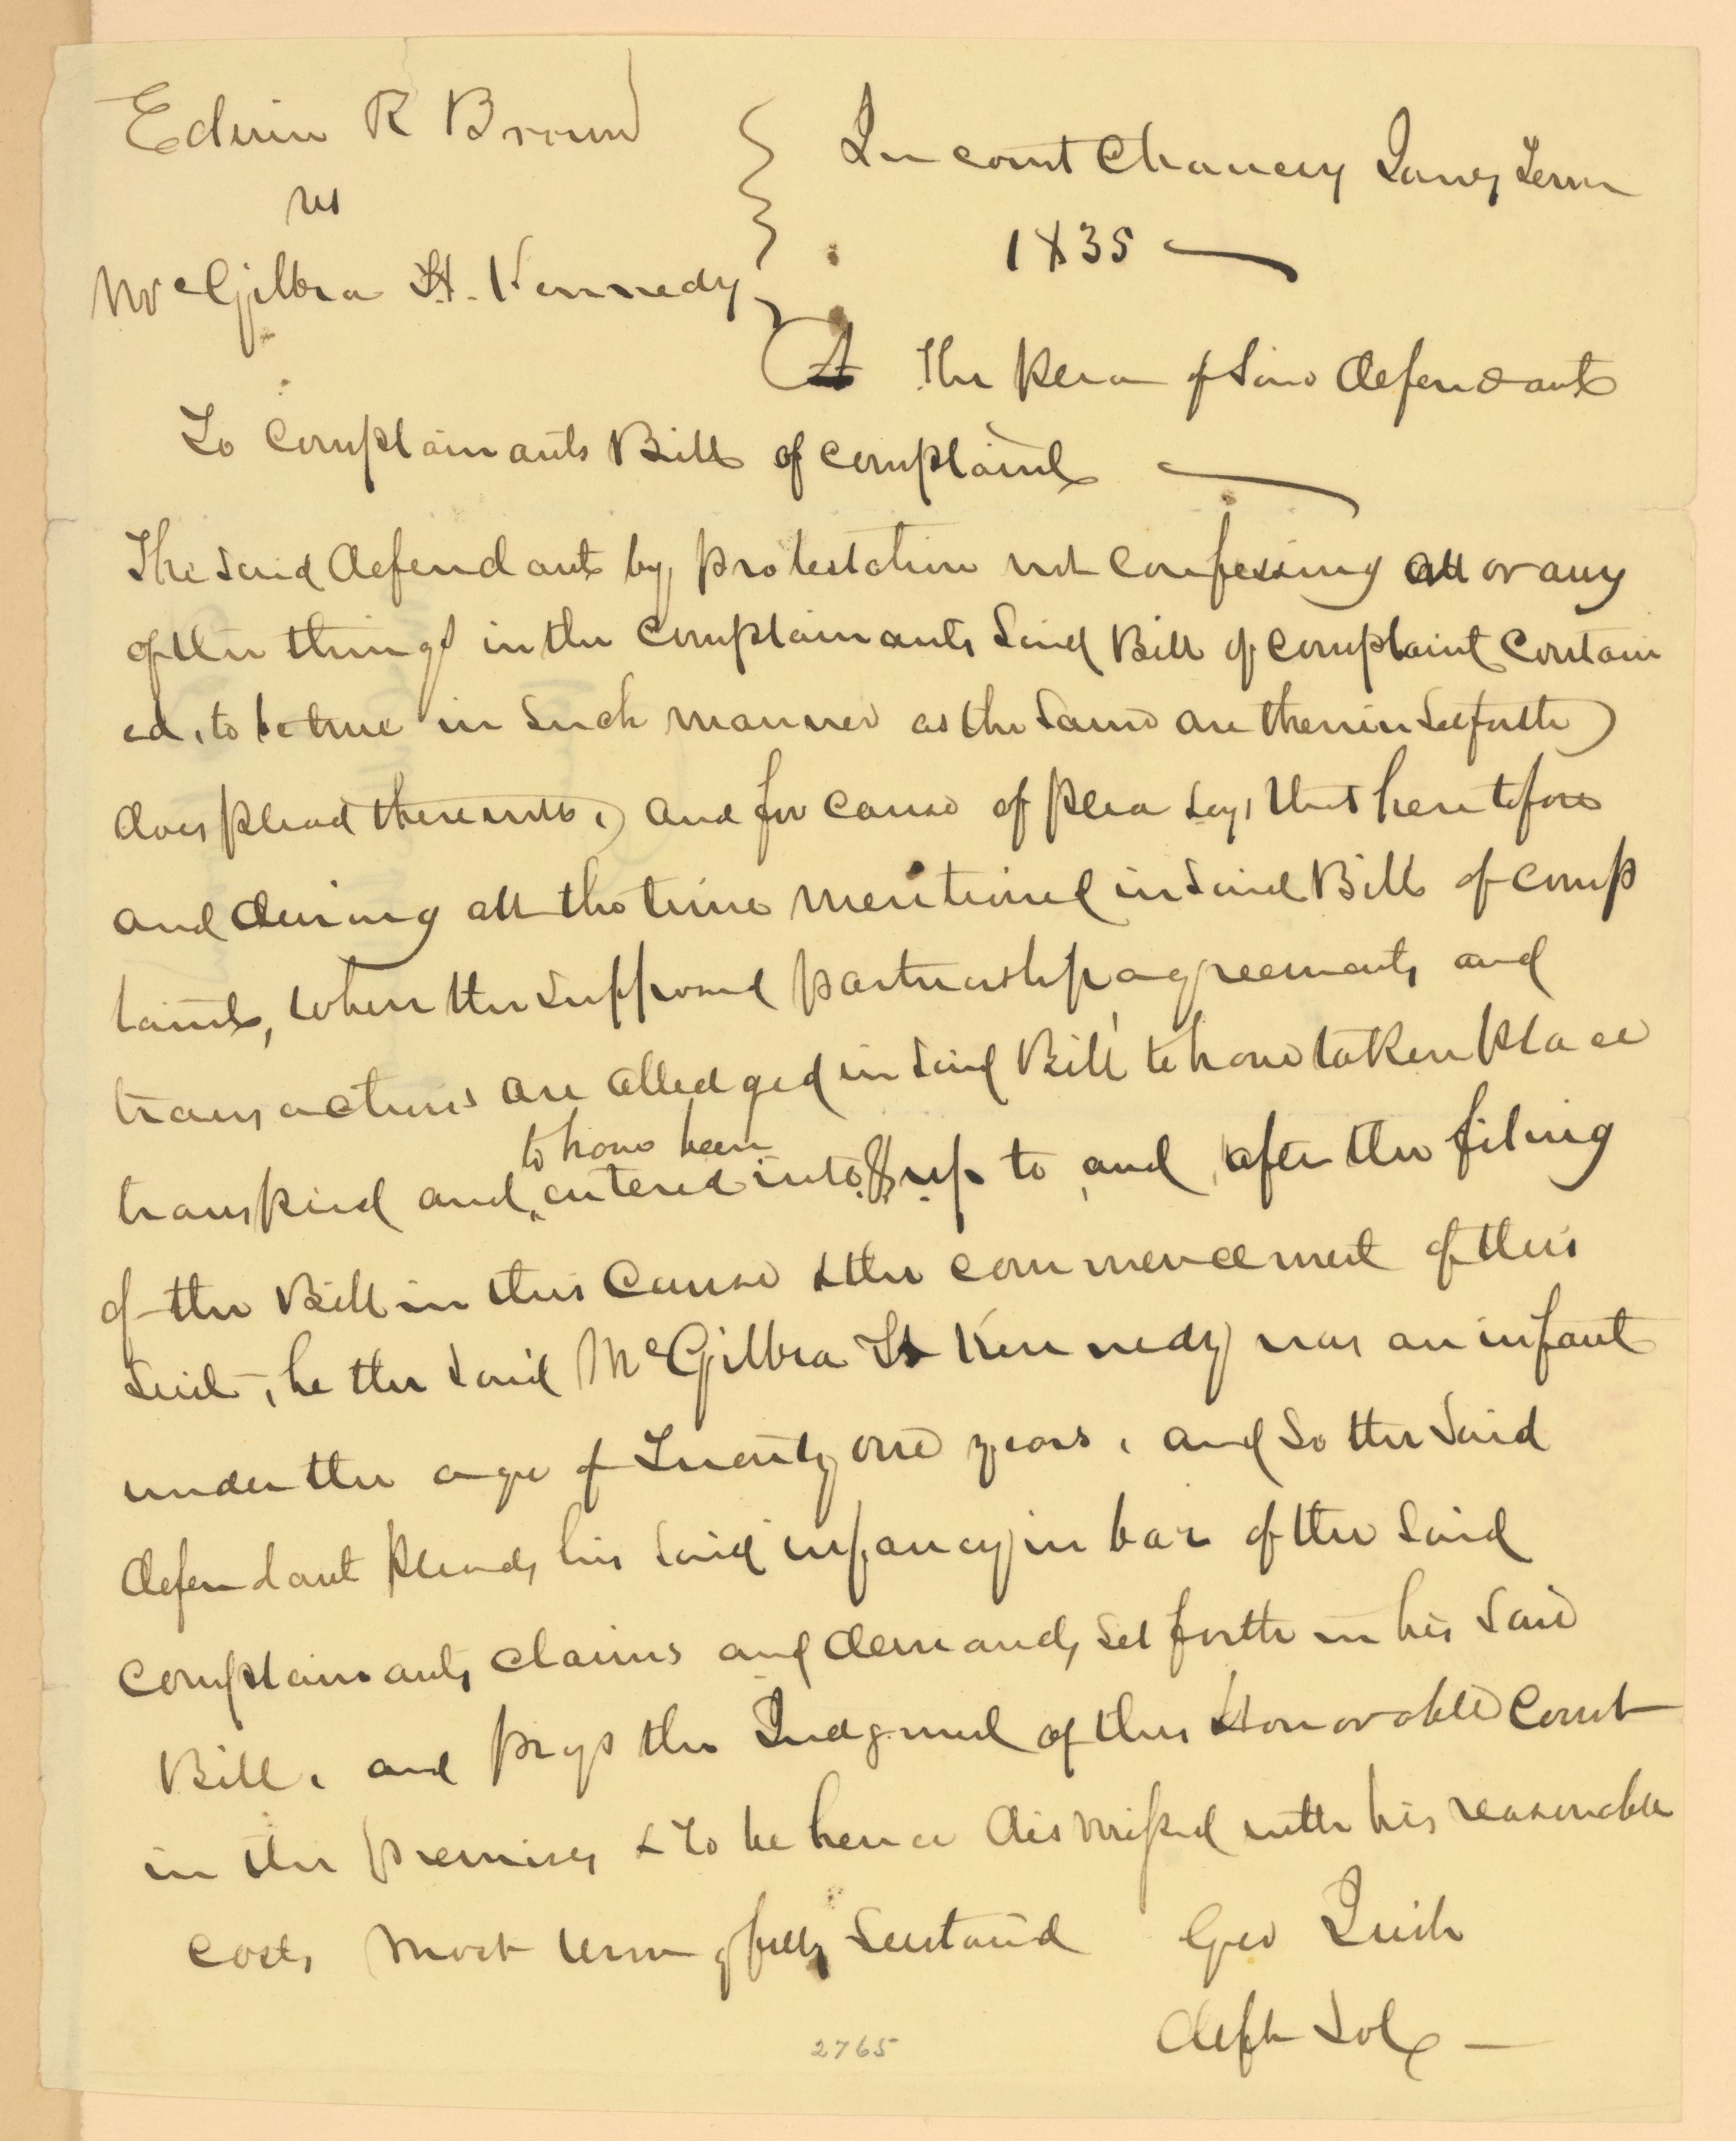 Edwin R Brown
vs
McGilbra H. Kennedy
In court Chancery Jany Term
1835
The plea of said defendant
To complainants Bill of complaint
The said defendant by protestation not confessing all or any
of the things in the complainants said Bill of complaint contain
ed, to be true in such manner as the same are therein set forth
does plead thereunto, and for cause of plea says that heretofore
and during all the time mentioned in said Bill of comp
laint, when the supposed partnership agreements and
transactions are alledged in said Bill to have taken place
transpired and to have been entered into, & up to and after the filing
of the Bill in this cause & the commencement of this
suit, he the said McGilbra H Kennedy was an infant
under the age of Twenty one years, and so the said
defendant pleads his said infancy in bar of the said
complainants claims and demands set forth in his said
Bill, and prays the Judgment of this Honorable Court
in the premises & to be hence dismissed with his reasonable
costs most wrongfully sustaind
Geo
deft Sol
2765